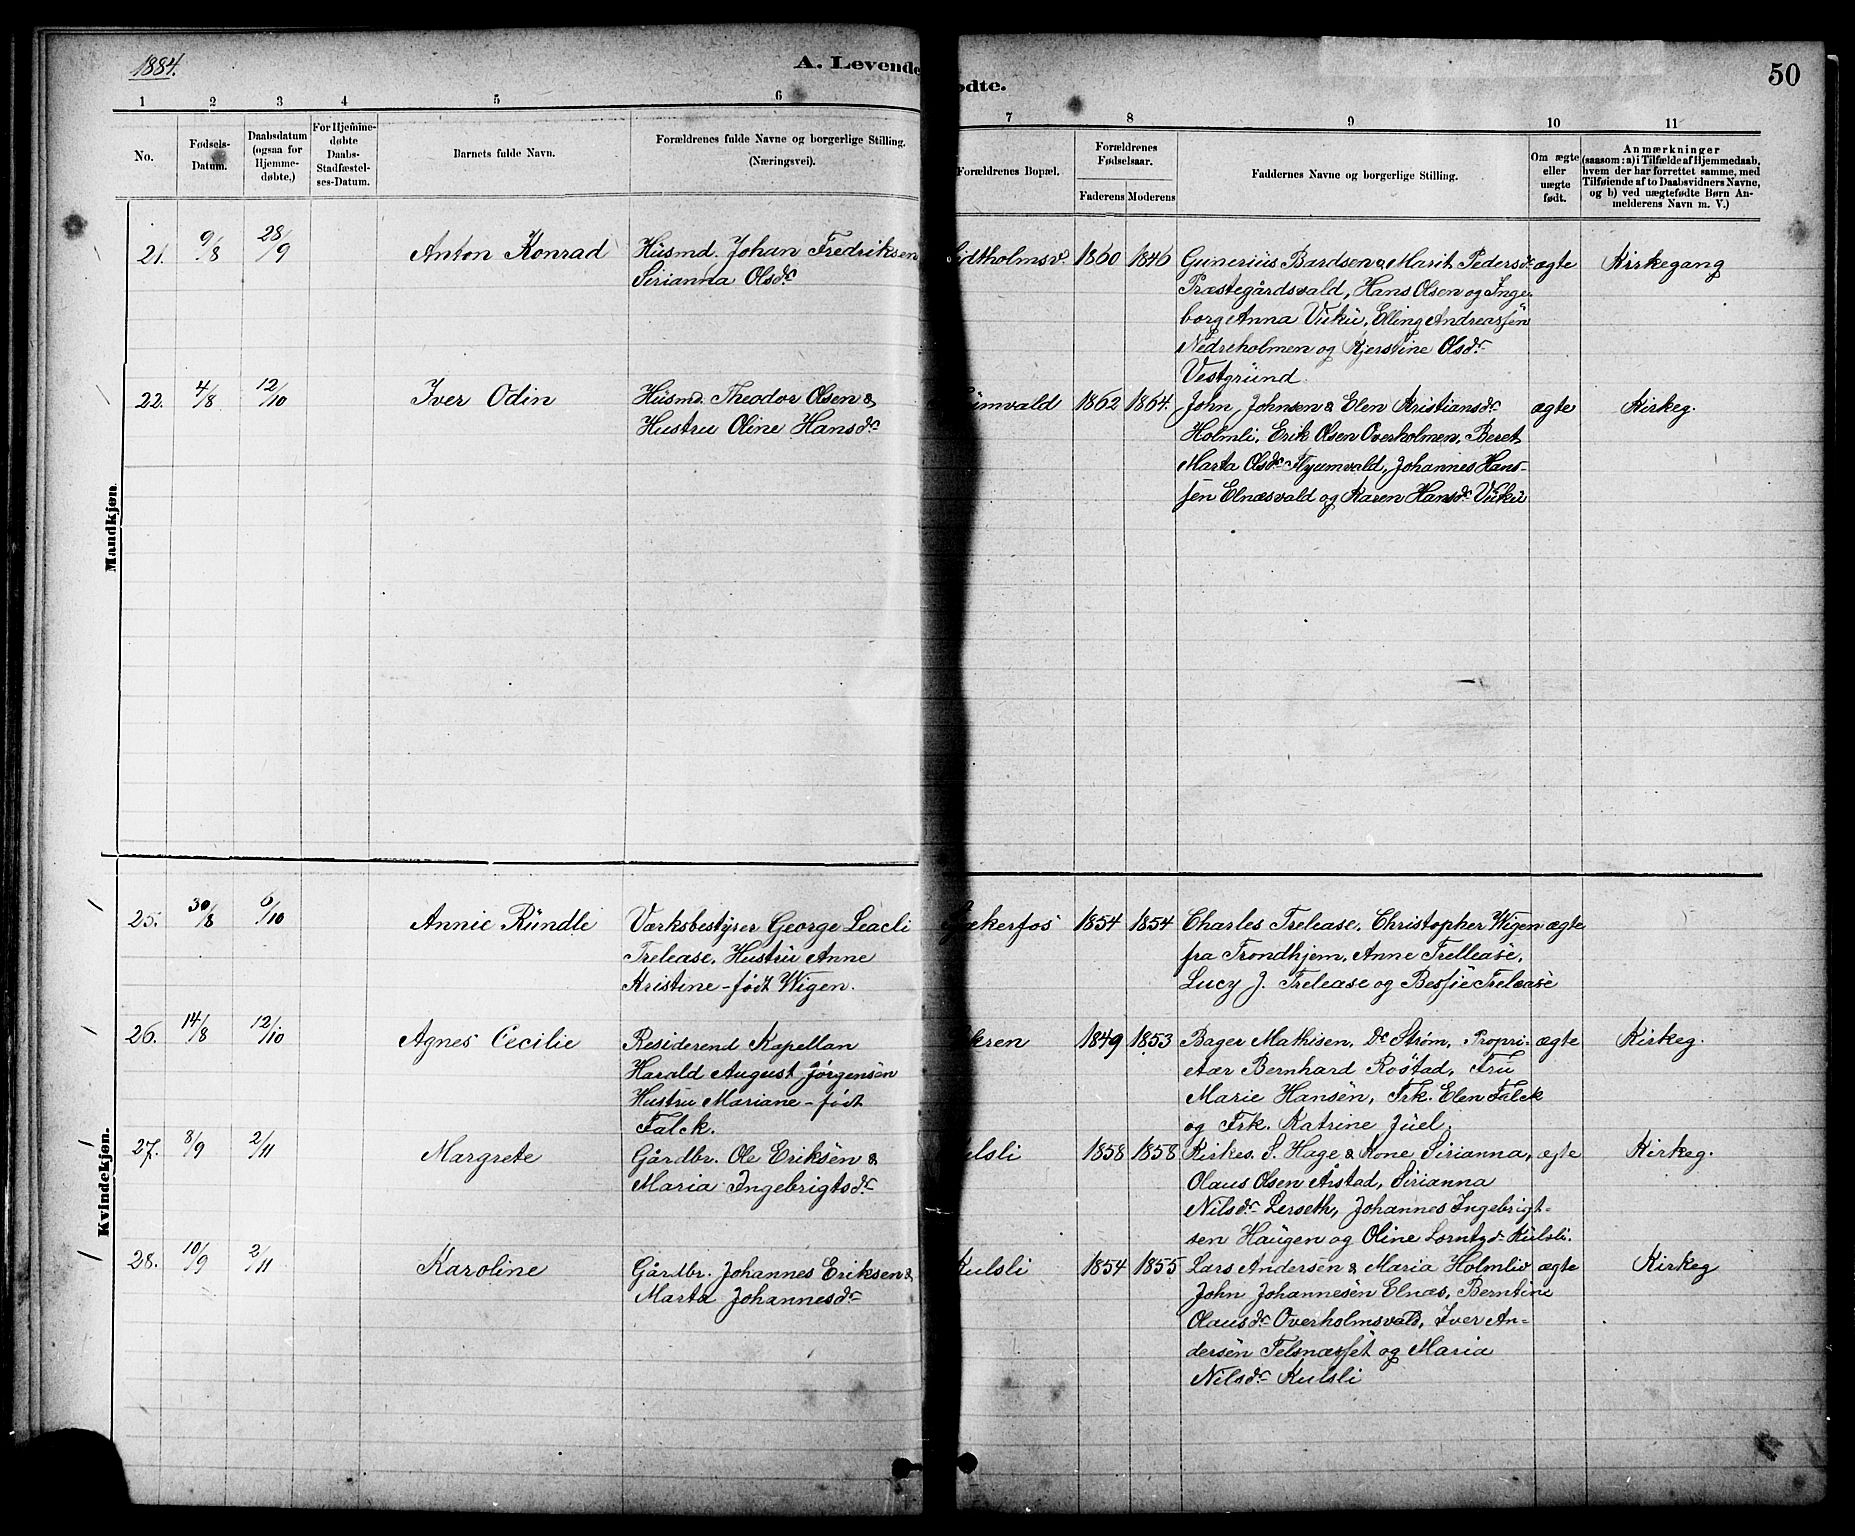 1884.
A. Levende
ødte.
50
1 2 3 4 5 6
7 8 9 10 11
No.
Fødsels-
Datum.
Daabsdatum
(ogsaa for
Hjemme-
døbte.)
For Hjemme-
døbte
Daabs-
Stadfæstel-
ses-Datum.
Barnets fulde Navn.
Forældrenes fulde Navne og borgerlige Stilling.
(Næringsvei).
Forældrenes Bopæl.
Forældrenes
Fødselsaar.
Faderens Moderens
Faddernes Navne og borgerlige Stilling.
Om ægte
eller
uægte
født.
Anmærkninger
(saasom: a) i Tilfælde af Hjemmedaab,
hvem der har forrettet samme, med
Tilføiende af to Daabsvidners Navne,
og b) ved uægtefødte Børn An-
melderens Navn m. V.)
Mandkjøn.
21. 9/8 28/9 Anton Konrad
Husmd. Johan Fredriksen
Sirianna Olsdr
idtholmsv. 1860 1846
Gunerius Bardsen & Marit Pedersdr
Præstegårdsvald, Hans Olsen og Inge-
borg Anna Vuku, Elling Andreassen
Nedreholmen og Kjerstine Olsdr
Vestgrund.
ægte Kirkegang
22. 4/8 12/10 Iver Odin
Husmd. Theodor Olsen &
Hustru Oline Hansdr
umvald 1862 1864.
John Johnsen & Elen Kristiansdr
Holmli, Erik Olsen Overholmen, Beret
Marta Olsdr Flyumvald, Johannes Hans-
sen Elnæsvald og Karen Hansdr Vuku
ægte Kirkeg.
Kvindekjøn.
25. 30/8 6/10 Annie Rundle
Værksbestyrer George Leach
Trelease, Hustru Anne
Kristine - født Wigen.
kerfos 1854 1854
Charles Trelease, Christopher Wigen
fra Trondhjem, Anne Trellease,
Lucy J. Trelease og Bessie Trelease
ægte
26. 14/8 12/10 Agnes Cecilie
Residerend Kapellan
Harald August Jørgensen
Hustru Mariane - født
Falck.
kren 1849 1853
Bager Mathisen, Dr Strøm, Propri-
etær Bernhard Røstad, Fru
Marie Hansen, Frk. Elen Falck
og Frk. Katrine Juel.
ægte Kirkeg.
27. 8/9 2/11 Margrete
Gårdbr. Ole Eriksen &
Maria Ingebrigtsdr
ulsli 1858 1858
Kirkes. S. Hage & Kone Sirianna,
Olaus Olsen Årstad, Sirianna
Nilsdr Lerseth, Johannes Ingebrigt-
sen Haugen og Oline Lorntzd. Kulsli.
ægte Kirkeg.
28. 10/9 2/11 Karoline
Gårdbr. Johannes Eriksen &
Marta Johannesdr
Kulsli 1854 1855
Lars Andersen & Maria Holmli
John Johannesen Elnæs, Berntine
Olausdr Overholmsvald, Iver An-
dersen Felsnæsset og Maria
Nilsdr Kulsli
ægte Kirkeg